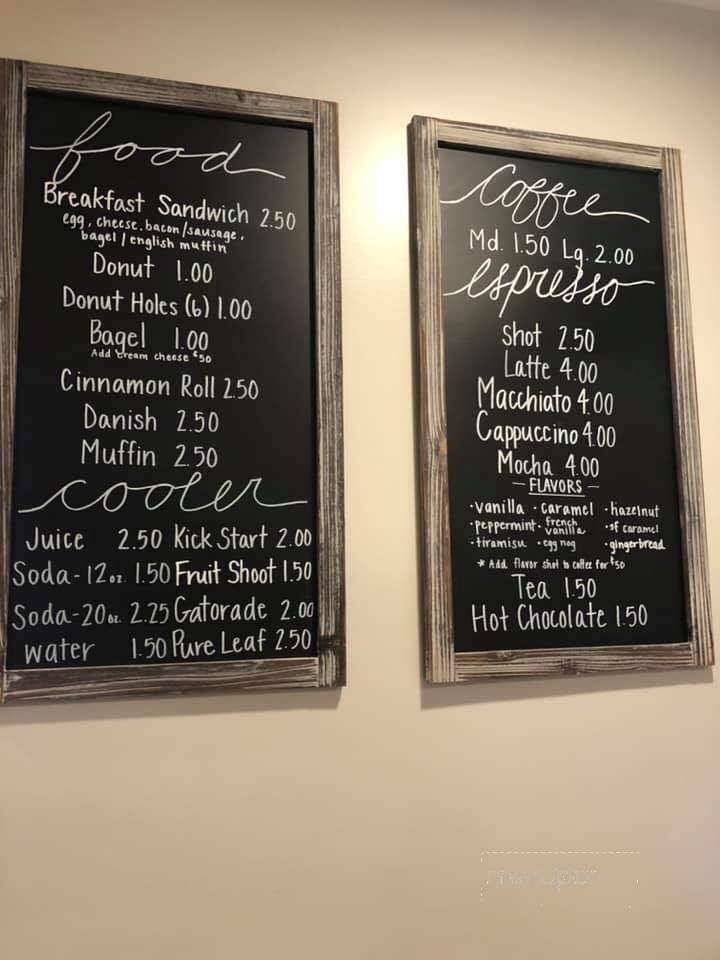 food
Breakfast Sandwich 2.50
egg, cheese, bacon/sausage,
bagel / english muffin
Donut 1.00
Donut Holes (6) 1.00
Bagel 1.00
Add cream cheese $.50
Cinnamon Roll 2.50
Danish 2.50
Muffin 2.50
cooler
Juice 2.50 Kick Start 2.00
Soda-12oz. 1.50 Fruit Shoot 1.50
Soda-20oz. 2.25 Gatorade 2.00
water 1.50 Pure Leaf 2.50
Coffee
Md. 1.50 Lg. 2.00
espresso
Shot 2.50
Latte 4.00
Macchiato 4.00
Cappuccino 4.00
Mocha 4.00
— FLAVORS —
·vanilla ·caramel ·hazelnut
·peppermint ·french vanilla ·sf caramel
·tiramisu ·egg nog ·gingerbread
* Add flavor shot to coffee for $.50
Tea 1.50
Hot Chocolate 1.50